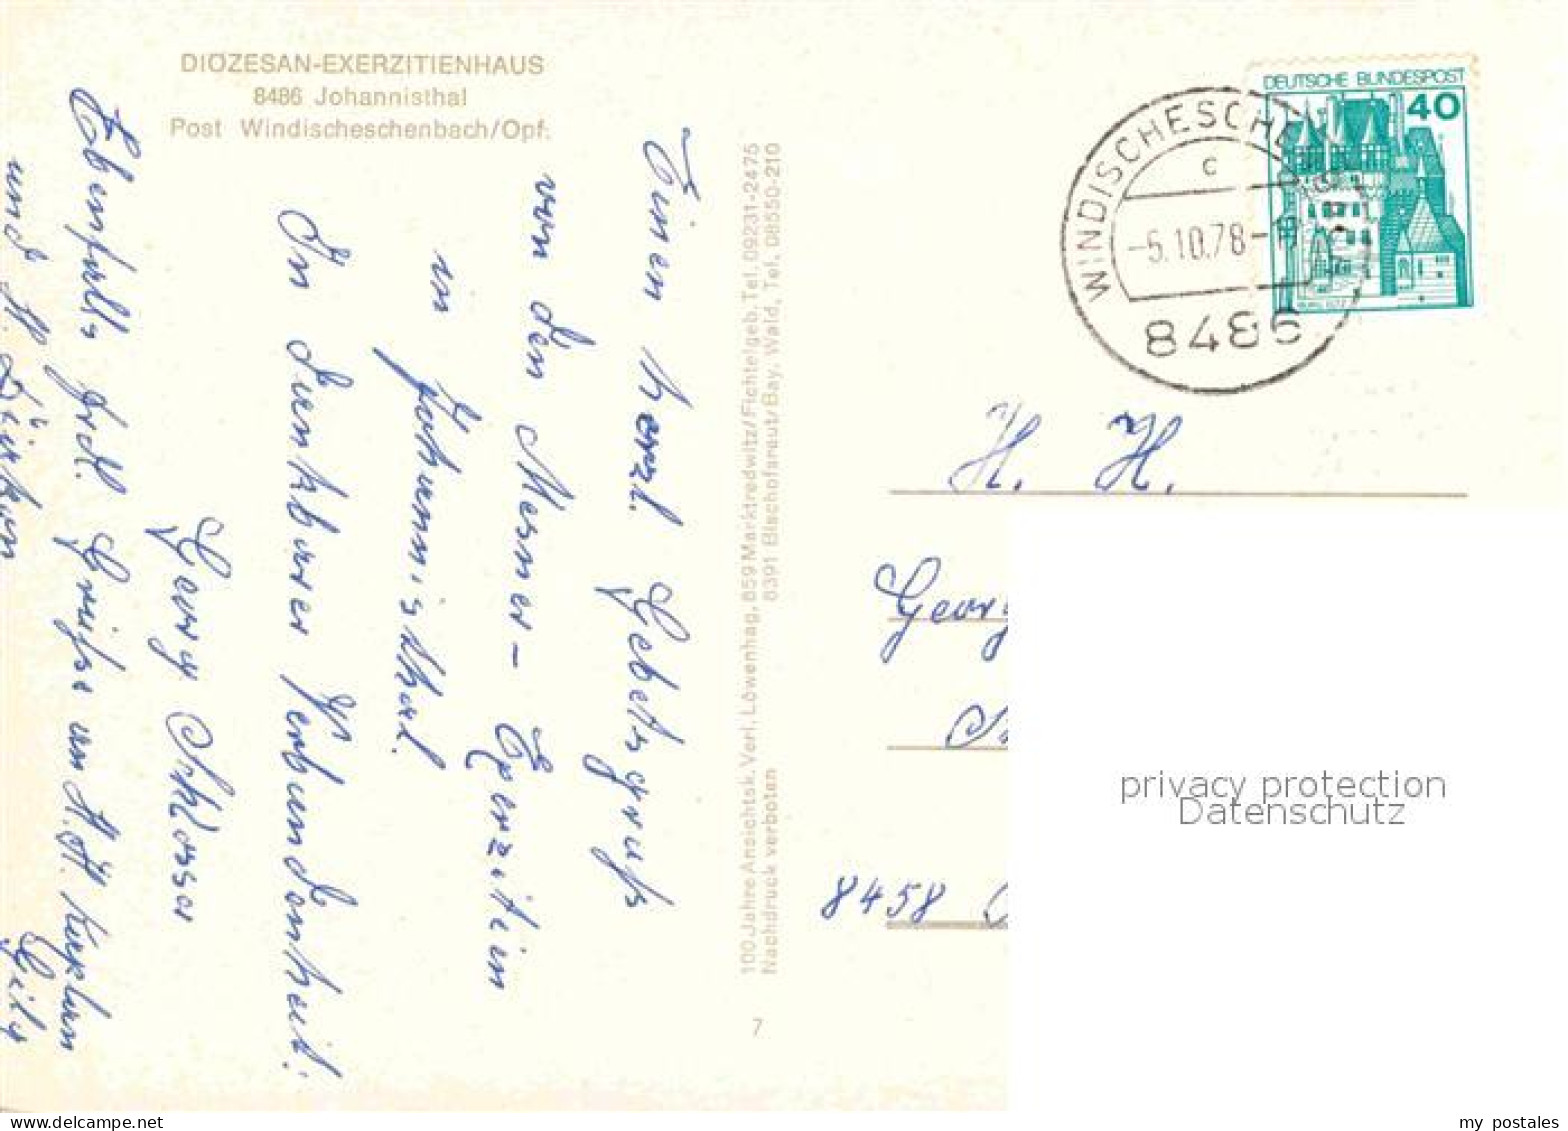 DIÖZESAN-EXERZITIENHAUS
8486 Johannisthal
Post Windischeschenbach/Opf.
Einen herzl. Gebetsgruß
von den Mesner-Exerzitien
in Johannisthal.
In dankbarer Verbundenheit!
Georg Schlosser
Ebenfalls frdl. Grüße an H. H. Kaplan
und H.
100 Jahre Ansichtsk. Verl. Löwenhag, 859 Marktredwitz/Fichtelgeb. Tel. 09231-2475
8391 Bischofsreut/Bay. Wald, Tel. 08550-210
Nachdruck verboten
7
DEUTSCHE BUNDESPOST
40
WINDISCHESCHE
c
-5.10.78-
8486
H. H.
Georg
8458
privacy protection
Datenschutz
my postales